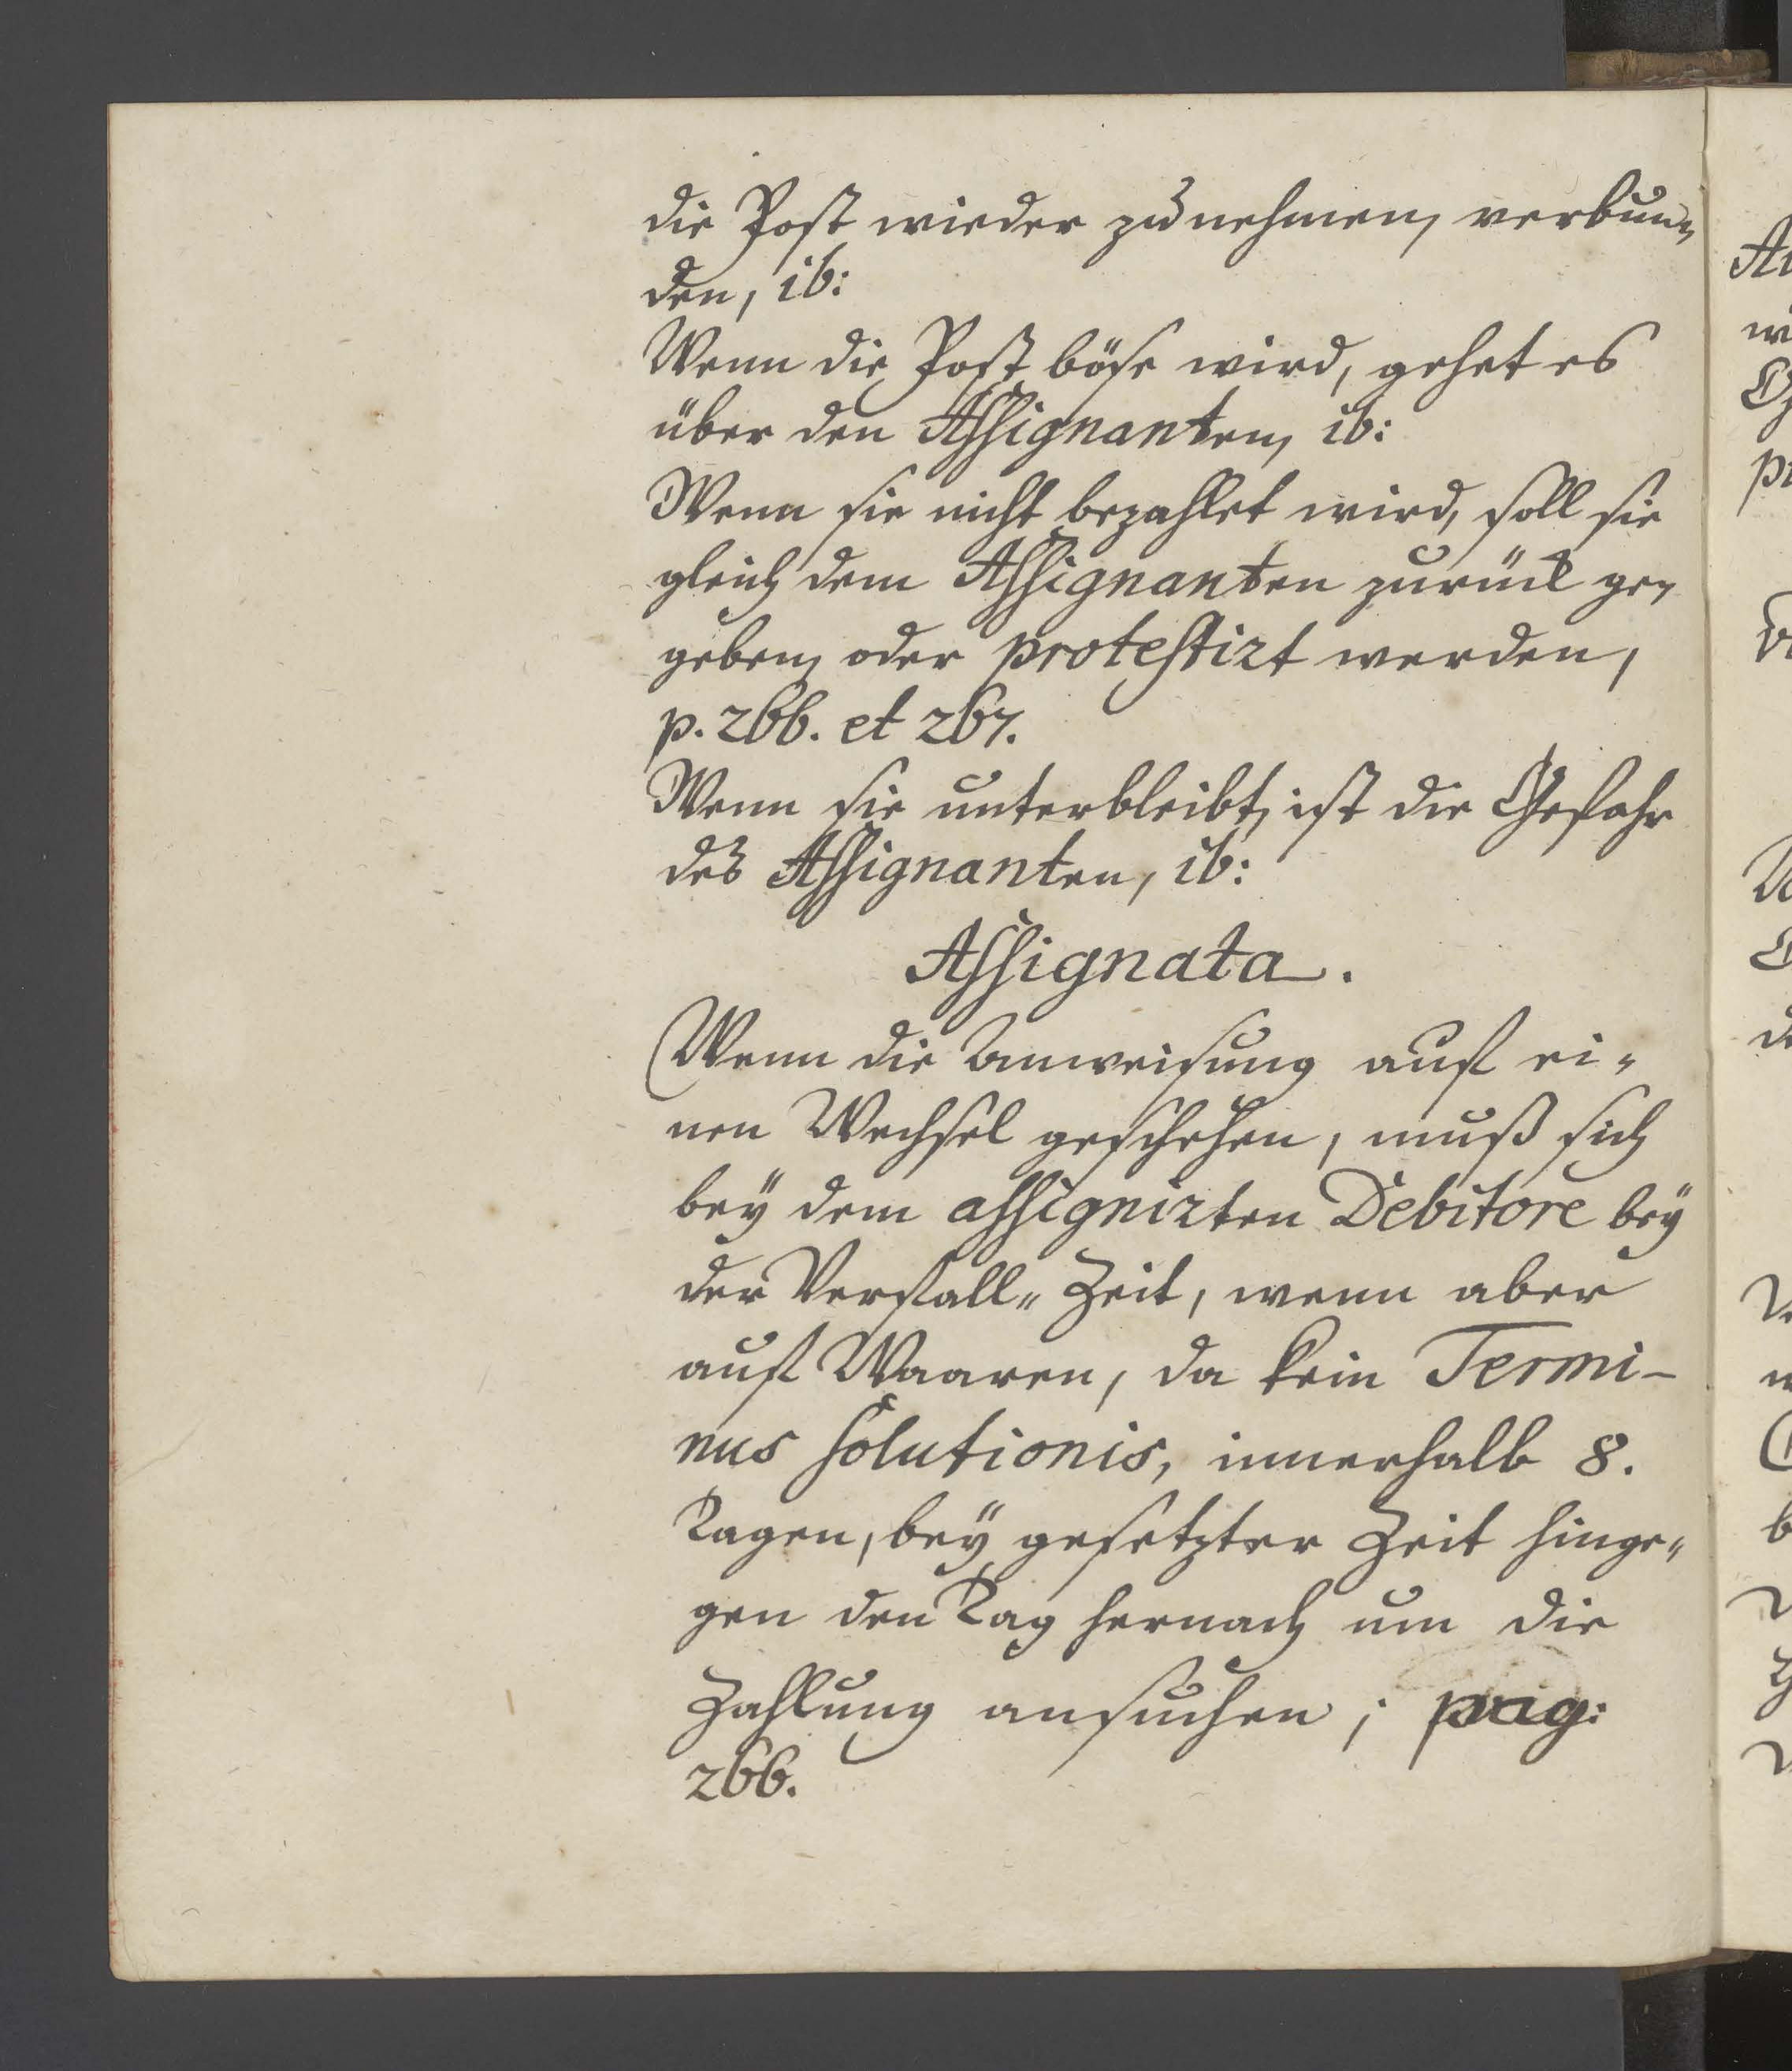 die Post wieder zu nehmen, verbun„
den, ib:
Wenn die Post böse wird, gehet es
über den Assignanten, ib:
Wenn sie nicht bezahlet wird, soll sie
gleich dem Assignanten zurück ge„
geben, oder protestirt werden,
p. 266. et 267.
Wenn sie unterbleibt, ist die Gefahr
des Assignanten, ib:
Assignata.
Wenn die Anweisung auf ei„
nen Wechsel geschehen, muß sich
bey dem assignirten Debitore bey
der Verfall„ Zeit, wenn aber
auf Waaren, da kein Termi-
nus solutionis, innerhalb 8.
Tagen, bey gesetzter Zeit hinge„
gen den Tag hernach um die
Zahlung ansuchen; pag:
266.